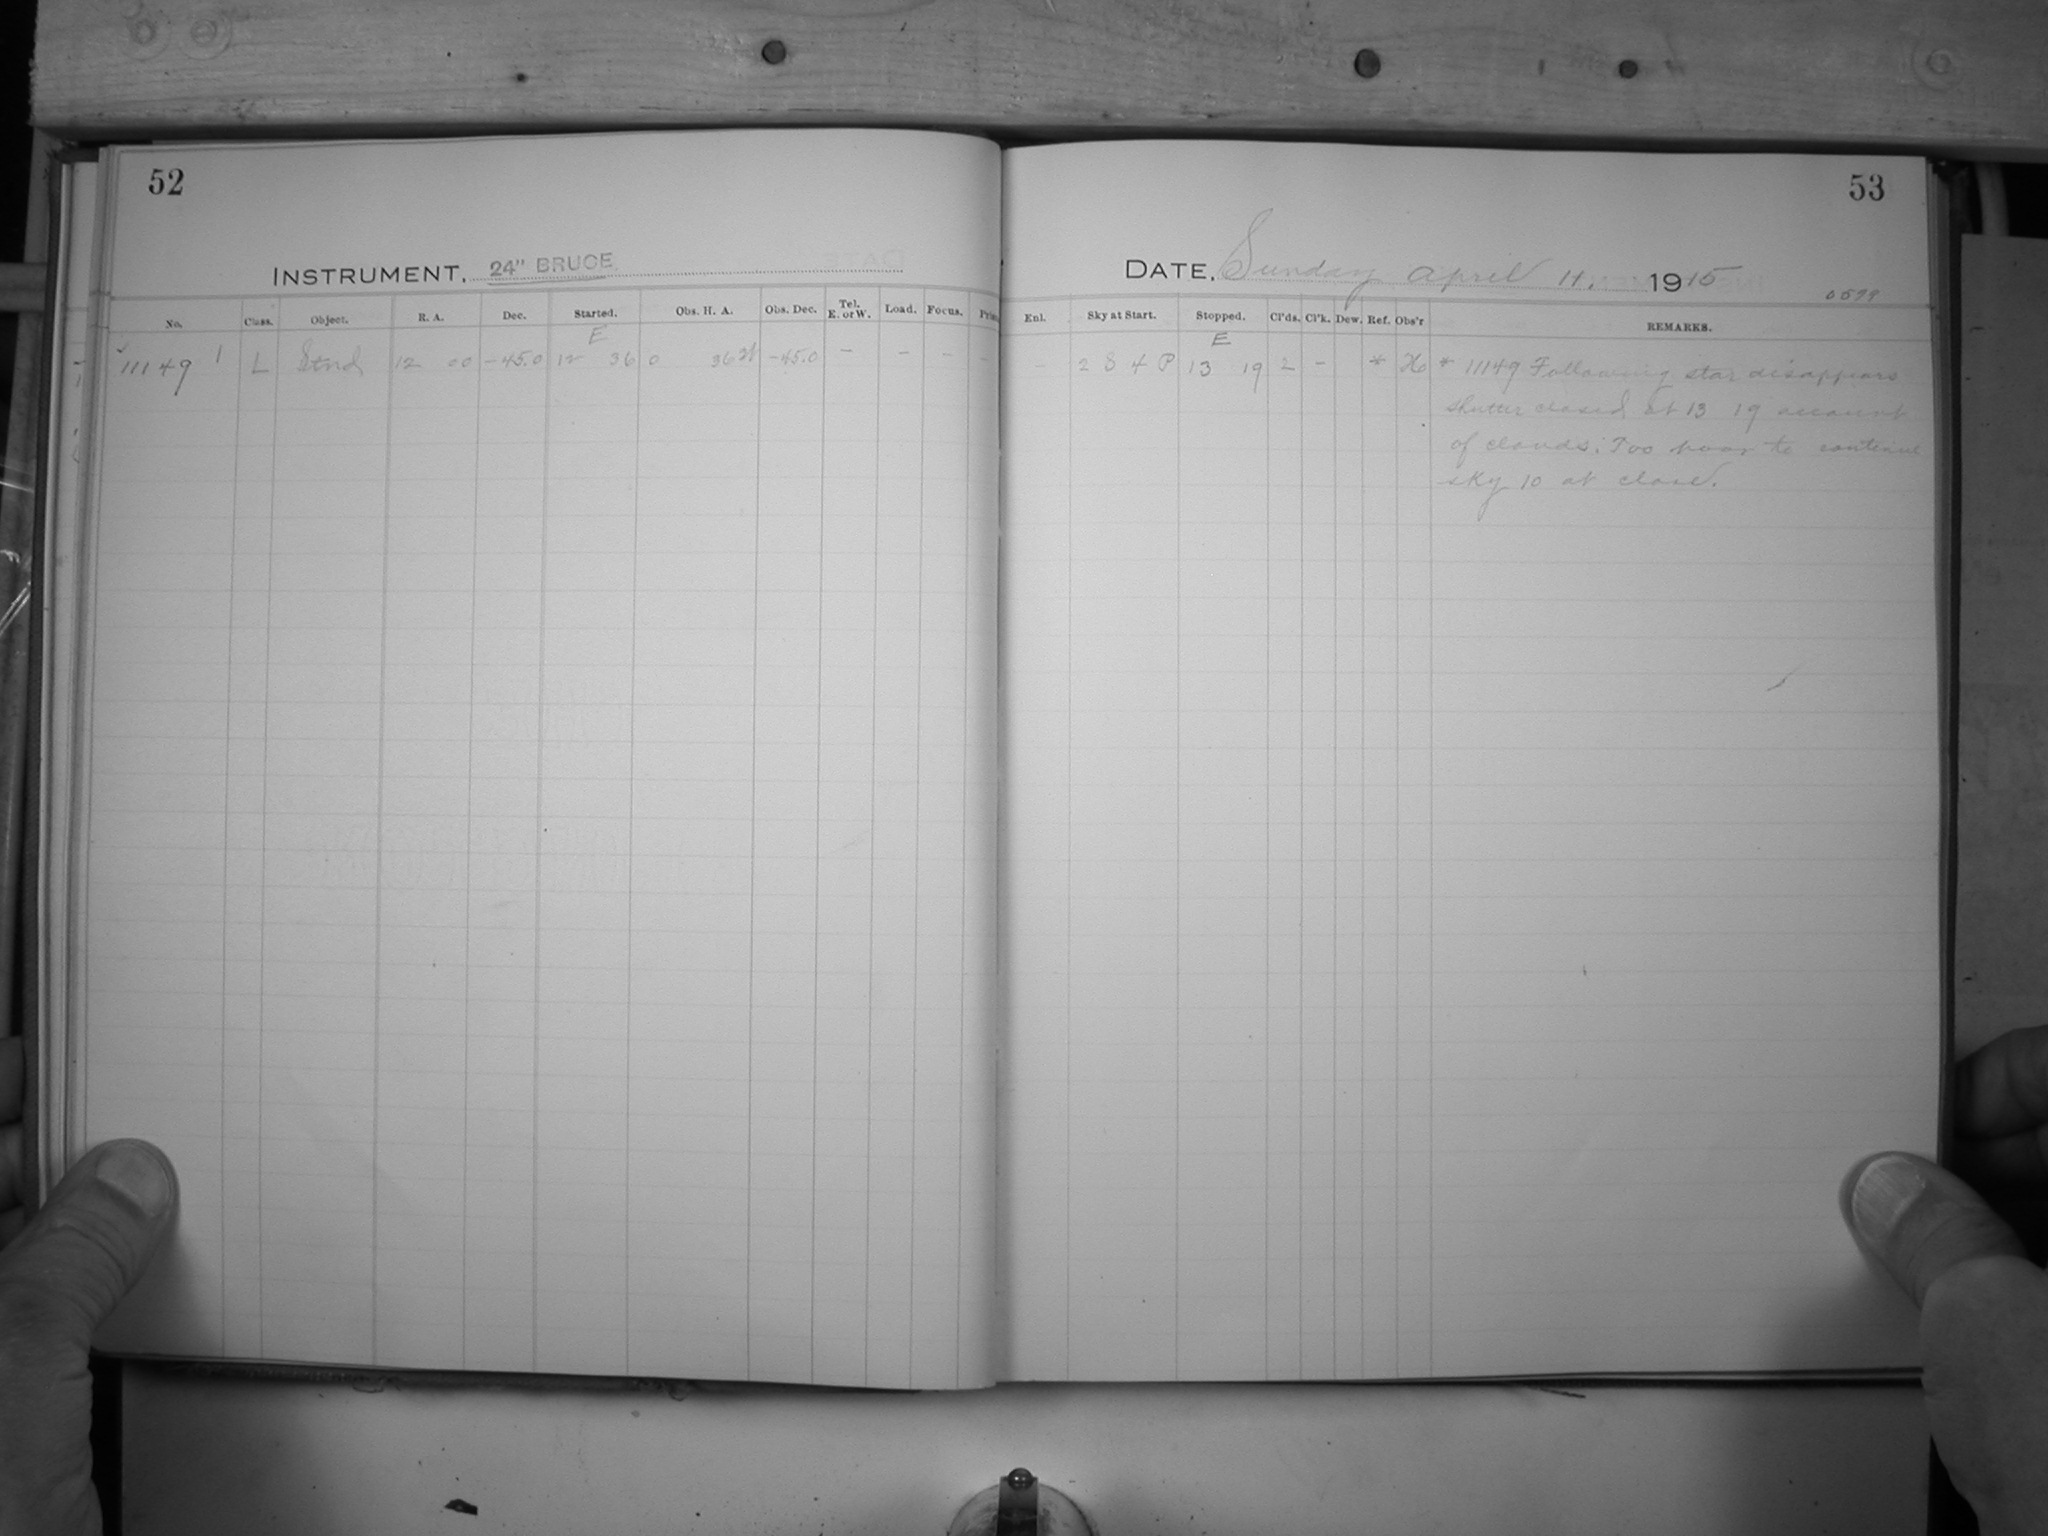 52
53
INSTRUMENT, 24" BRUCE.
DATE, Sunday April 11, 1915
0599
No. Class. Object. R. A. Dec. Started. Obs. H. A. Obs. Dec. Tel. E. or W. Load. Focus.
Enl. Sky at Start. Stopped. Cl'ds. Cl'k. Dew. Ref. Obs'r REMARKS.
E E
11149 1 L Stnd 12 00 -45.0 12 36 0 36 W -45.0 - - - -
- 2 8 4 P 13 19 2 - * * 11149 Following star disappears
shutter closed at 13 19 account
of clouds. Too poor to continue
sky 10 at close.